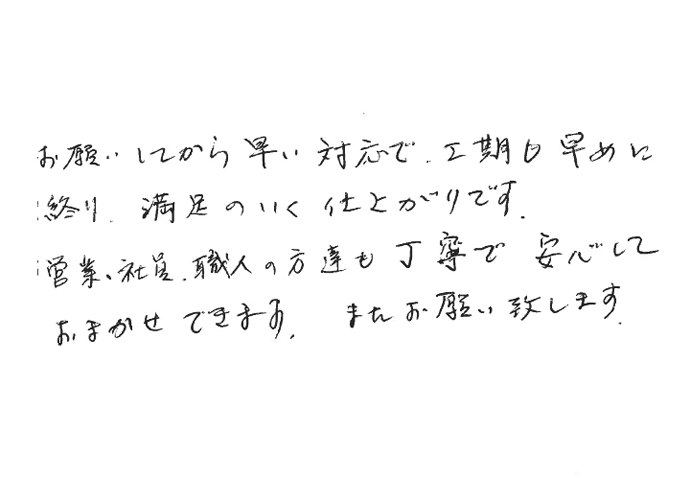 お願いしてから早い対応で、工期も早めに
終り、満足のいく仕上がりです。
営業、社員、職人の方達も丁寧で安心して
おまかせできます。またお願い致します。